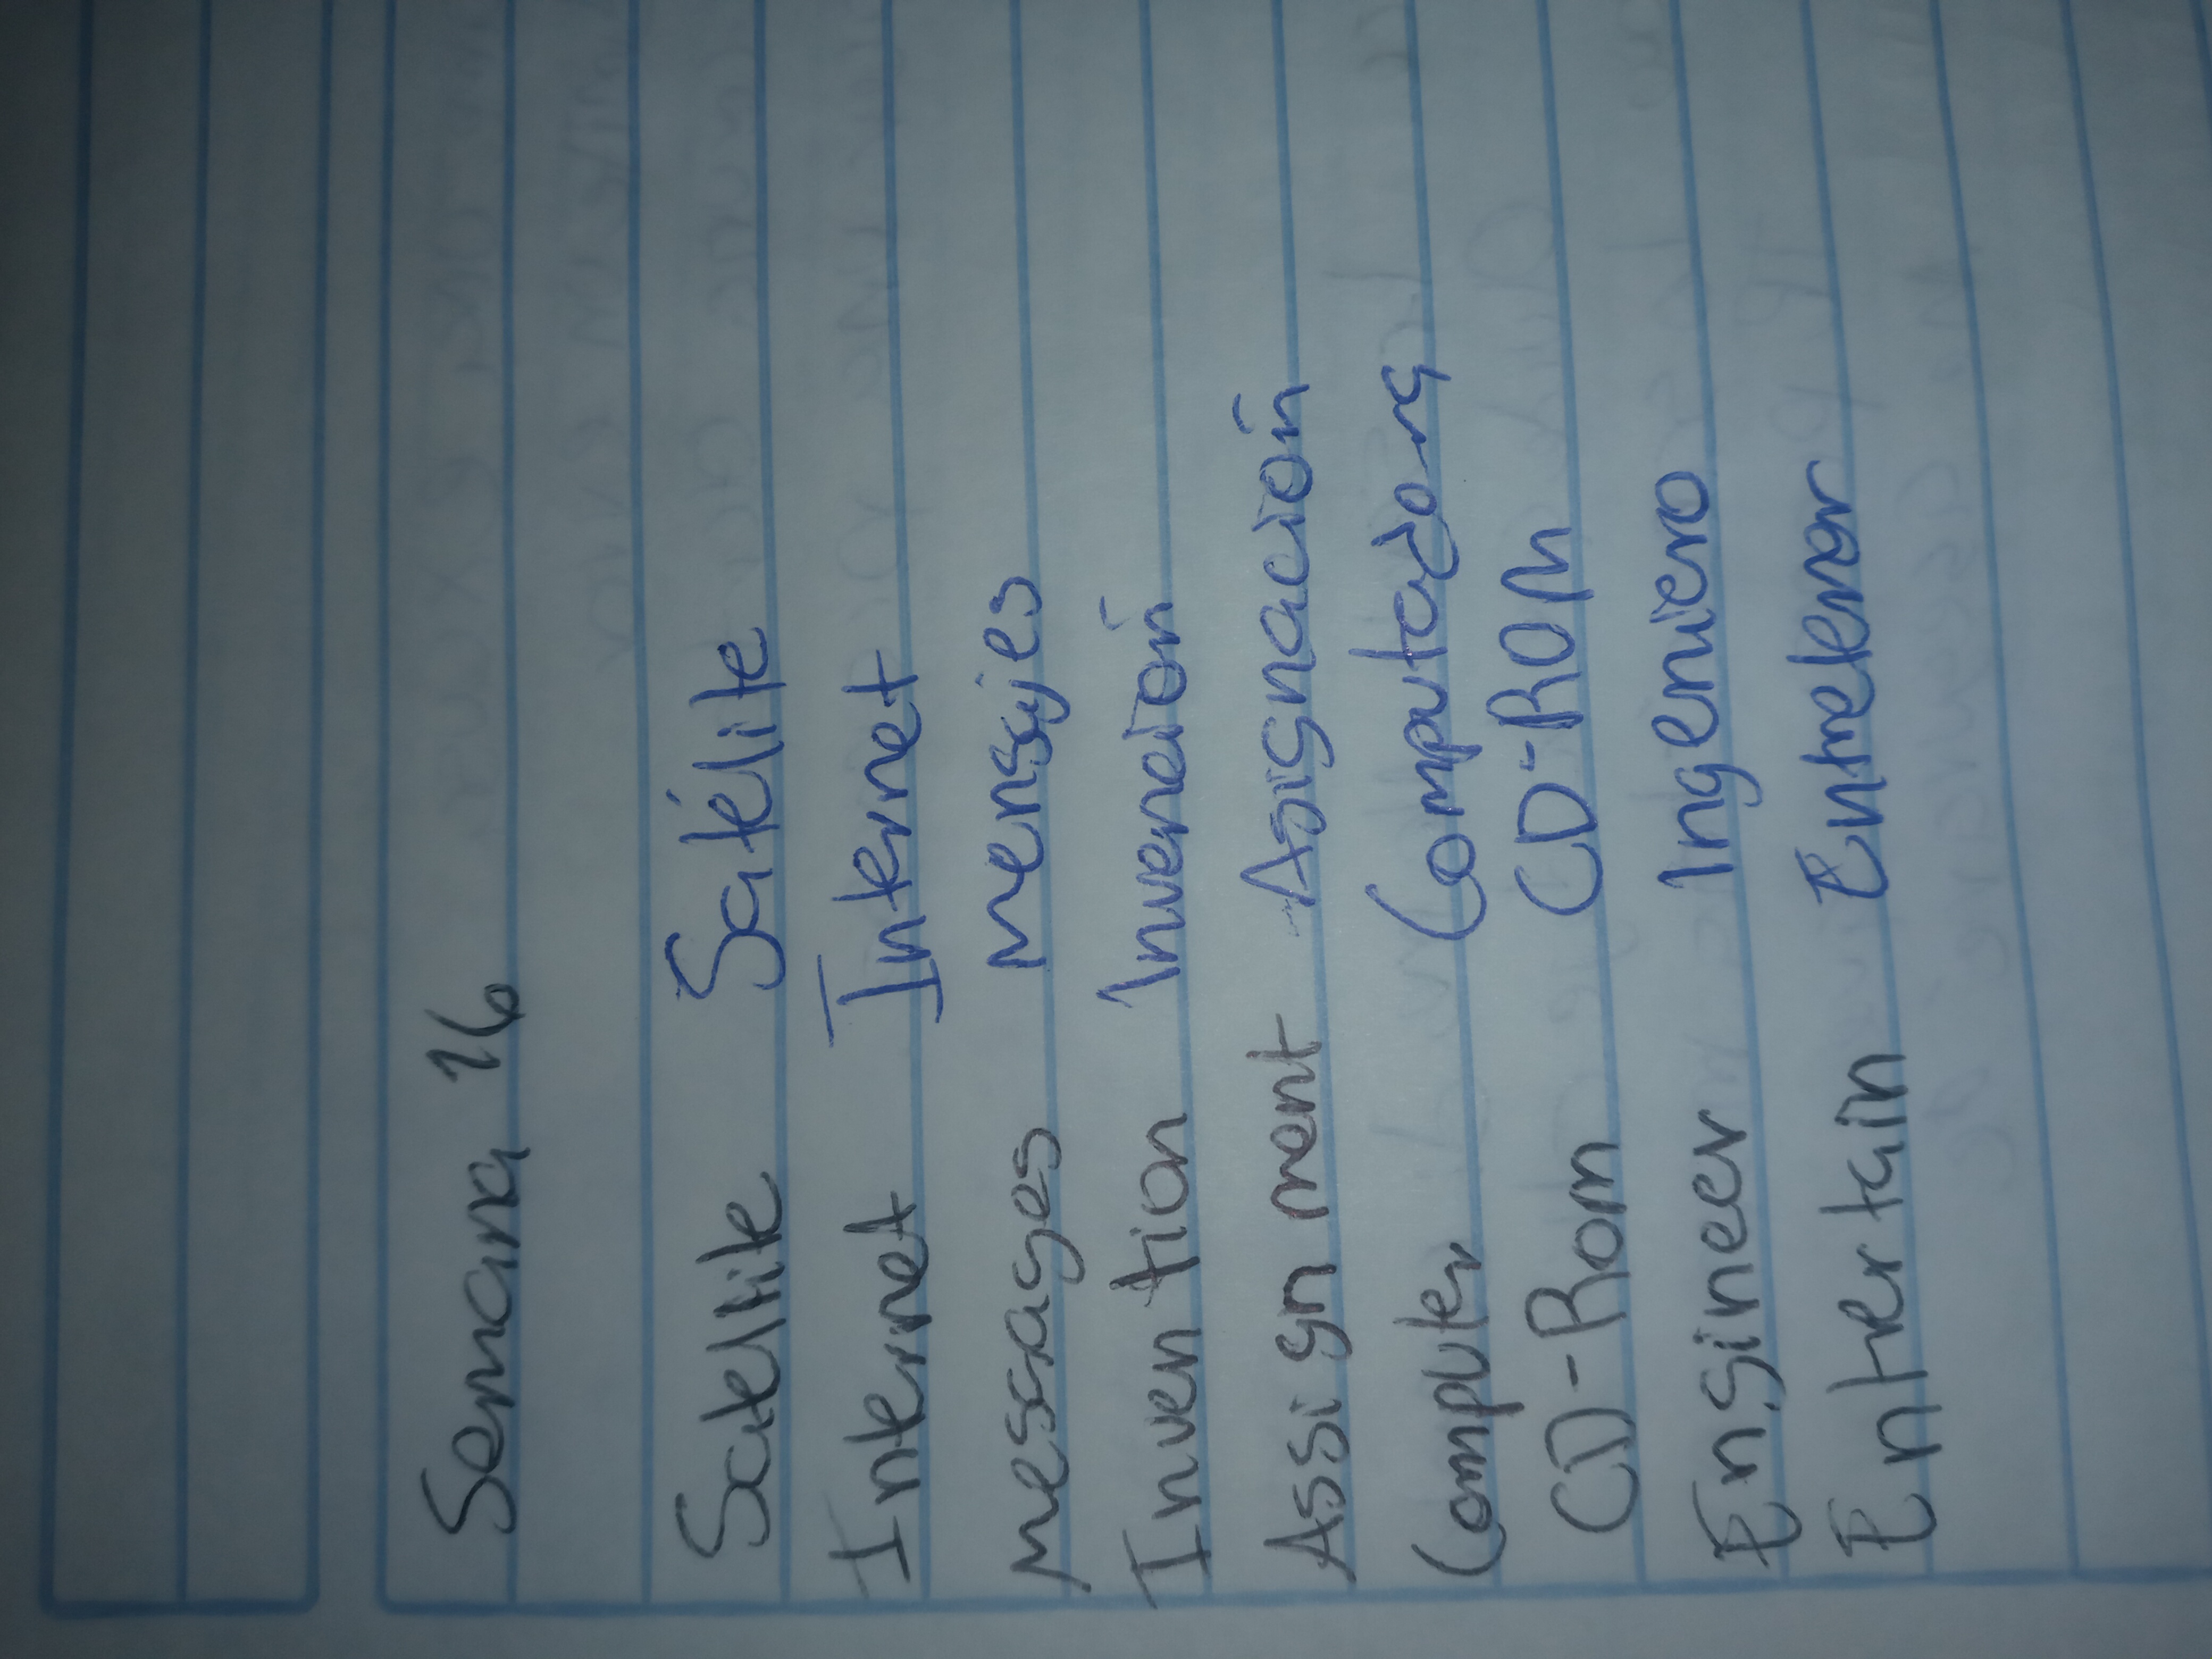 Semana 16
Satellite Satélite
Internet Internet
messages mensajes
Invention Invención
Assignment Asignación
Computer Computadora
CD-Rom CD-ROM
Engineer Ingeniero
Entertain Entretener